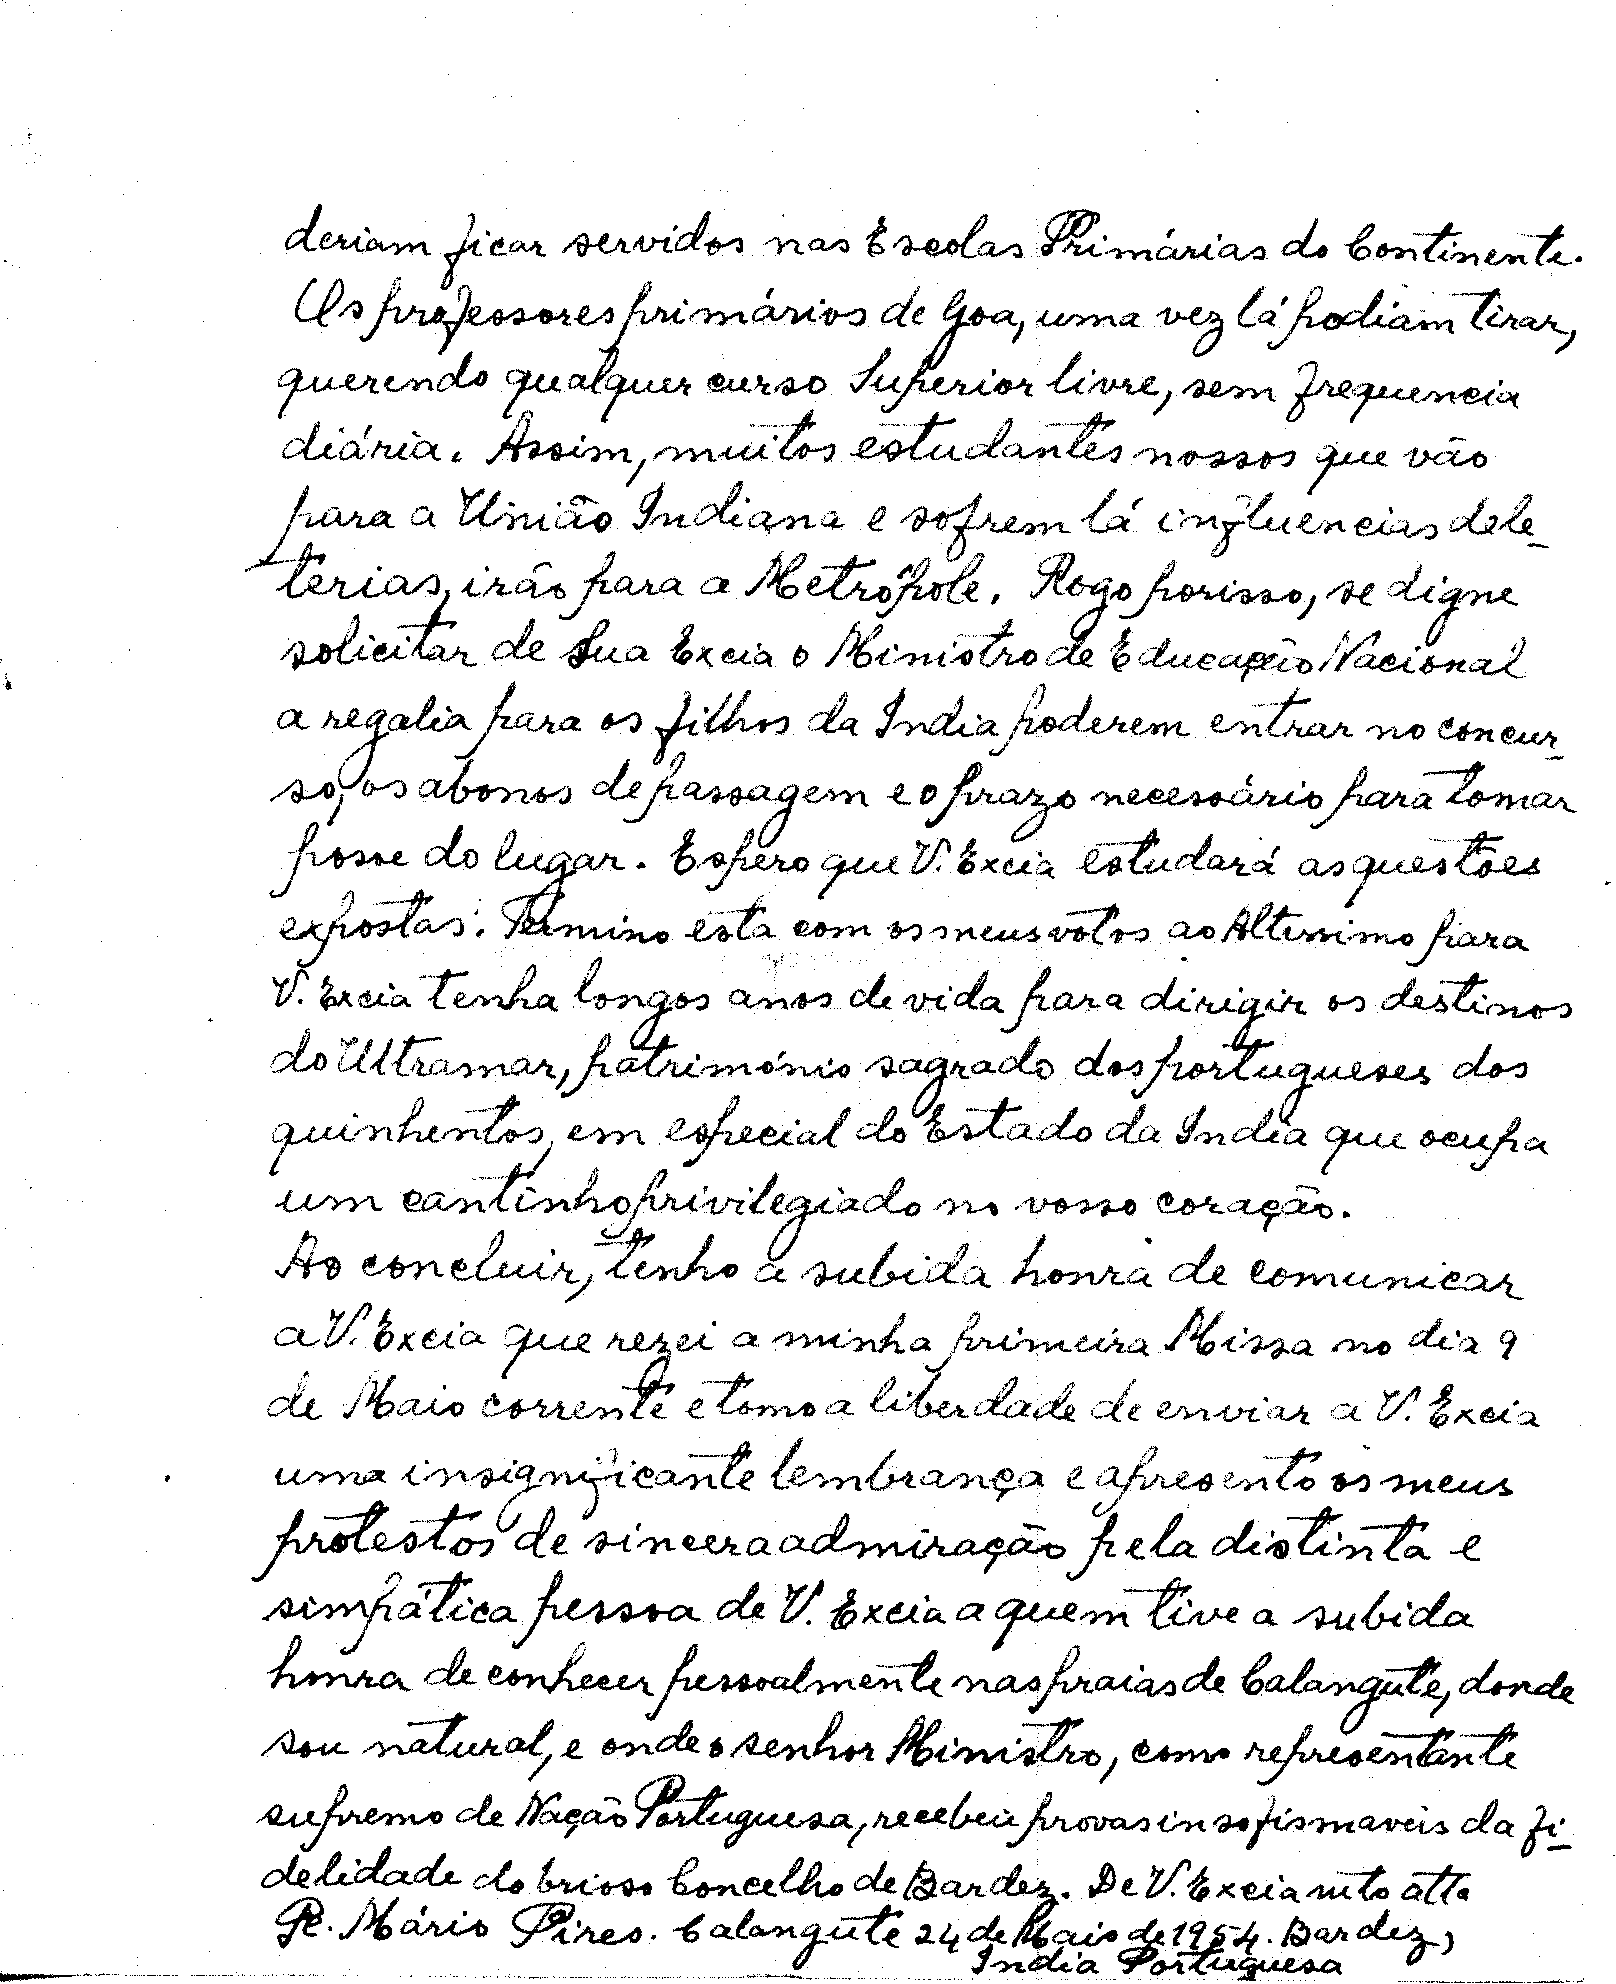 deriam ficar servidos nas Escolas Primárias do Continente.
Os professores primários de Goa, uma vez lá podiam tirar,
querendo qualquer curso Superior livre, sem frequencia
diária. Assim, muitos estudantes nossos que vão
para a União Indiana e sofrem lá influencias dele_
terias, irão para a Metrópole. Rogo porisso, se digne
solicitar de Sua Excia o Ministro de Educação Nacional
a regalia para os filhos da India poderem entrar no concur_
so, os abonos de passagem e o prazo necessário para tomar
posse do lugar. Espero que V. Excia estudará as questões
expostas. Termino esta com os meus votos ao Altissimo para
V. Excia tenha longos anos de vida para dirigir os destinos
do Ultramar, património sagrado dos portugueses dos
quinhentos, em especial do Estado da India que ocupa
um cantinho privilegiado no vosso coração.
Ao concluir, tenho a subida honra de comunicar
a V. Excia que rezei a minha primeira Missa no dia 9
de Maio corrente e tomo a liberdade de enviar a V. Excia
uma insignificante lembrança e apresento os meus
protestos de sincera admiração pela distinta e
simpática pessoa de V. Excia a quem tive a subida
honra de conhecer pessoalmente nas praias de Calangute, donde
sou natural, e onde o senhor Ministro, como representante
supremo de Nação Portuguesa, recebeu provas insofismaveis da fi_
delidade do brioso Concelho de Bardez. De V. Excia mto atto
Pe. Mário Pires. Calangute 24 de Maio de 1954. Bardez,
India Portuguesa